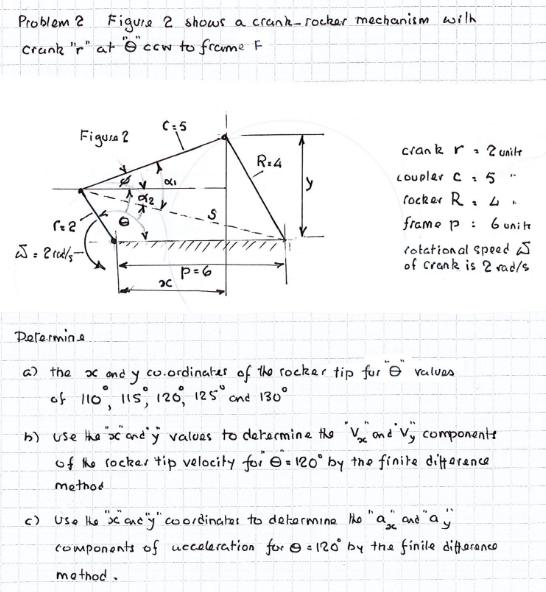 Problem 2 Figure 2 shows a crank-rocker mechanism with
crank "r" at "θ" ccw to frame F
Figure 2
C=5
R=4
y
φ
α1
α2
S
r=2
θ
ω = 2 rad/s
P=6
x
crank r = 2 units
coupler C = 5 "
rocker R = 4 "
frame p : 6 units
rotational speed ω
of crank is 2 rad/s
Determine
a) the x and y co-ordinates of the rocker tip for "θ" values
of 110°, 115°, 120°, 125° and 130°
b) Use the "x" and "y" values to determine the "Vx" and "Vy" components
of the rocker tip velocity for θ = 120° by the finite difference
method
c) Use the "x" and "y" coordinates to determine the "ax" and "ay"
components of acceleration for θ = 120° by the finite difference
method.